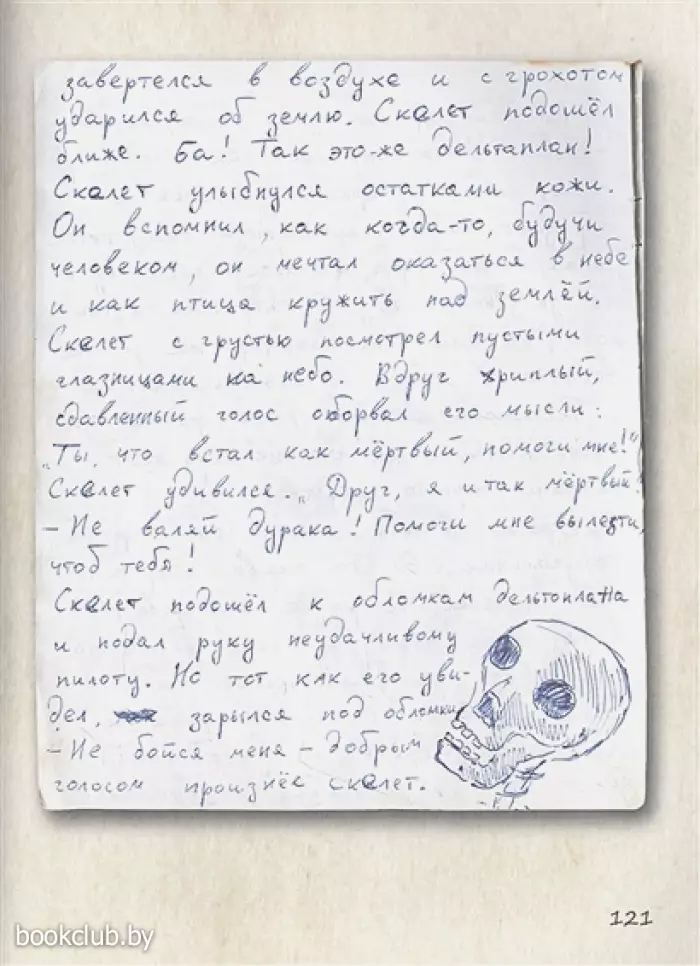 завертелся в воздухе и с грохотом
ударился об землю. Скелет подошёл
ближе. Ба! Так это-же дельтаплан!
Скелет улыбнулся остатками кожи.
Он вспомнил, как когда-то, будучи
человеком, он мечтал оказаться в небе
и как птица кружить над землёй.
Скелет с грустью посмотрел пустыми
глазницами на небо. Вдруг хриплый,
сдавленный голос оборвал его мысли:
„Ты, что встал как мёртвый, помоги мне!"
Скелет удивился. „Друг, я и так мёртвый!
– Не валяй дурака! Помоги мне вылезти,
чтоб тебя!
Скелет подошёл к обломкам дельтоплана
и подал руку неудачливому
пилоту. Но тот, как его уви-
дел, зарылся под обломки
– Не бойся меня – добрым
голосом произнёс скелет.
121
bookclub.by